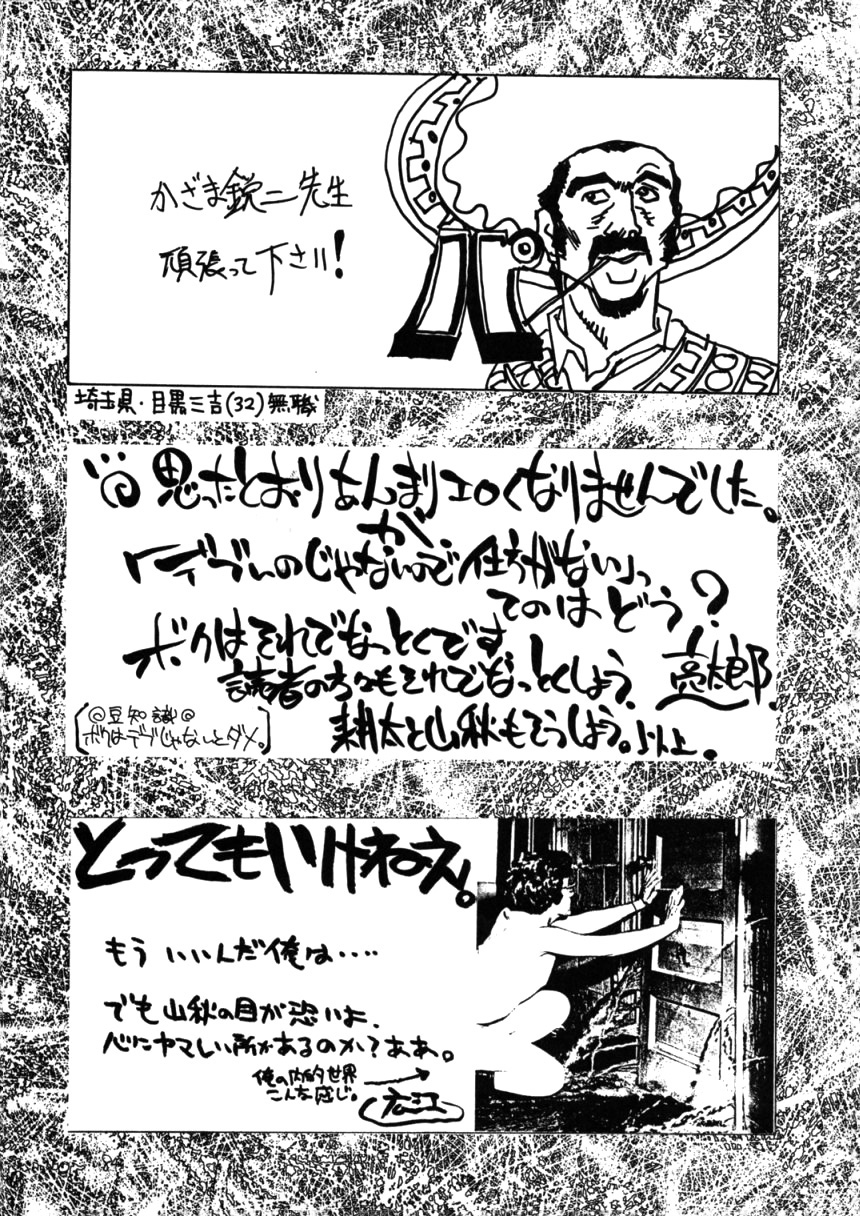 かざま鋭二先生
頑張って下さい!
埼玉県・目黒三吉(32)無職
思ったとおりあんまりエロくなりませんでした。
が
「デブいのじゃないので仕方がない」っ
てのはどう?
ボクはそれでなっとくです
読者の方々もそれでなっとくしよう、
亮太郎
耕太と山秋もそうしよう。以上。
◎豆知識◎
ボクはデブじゃないとダメ。
とってもいけねえ。
もういいんだ俺は・・・・
でも山秋の目が恐いよ、
心にヤマしい所があるのか?ああ。
俺の内的世界
こんな感じ。
広江